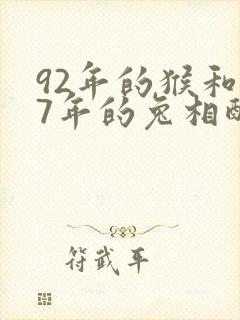 92年的猴和
7年的兔相配
符武平